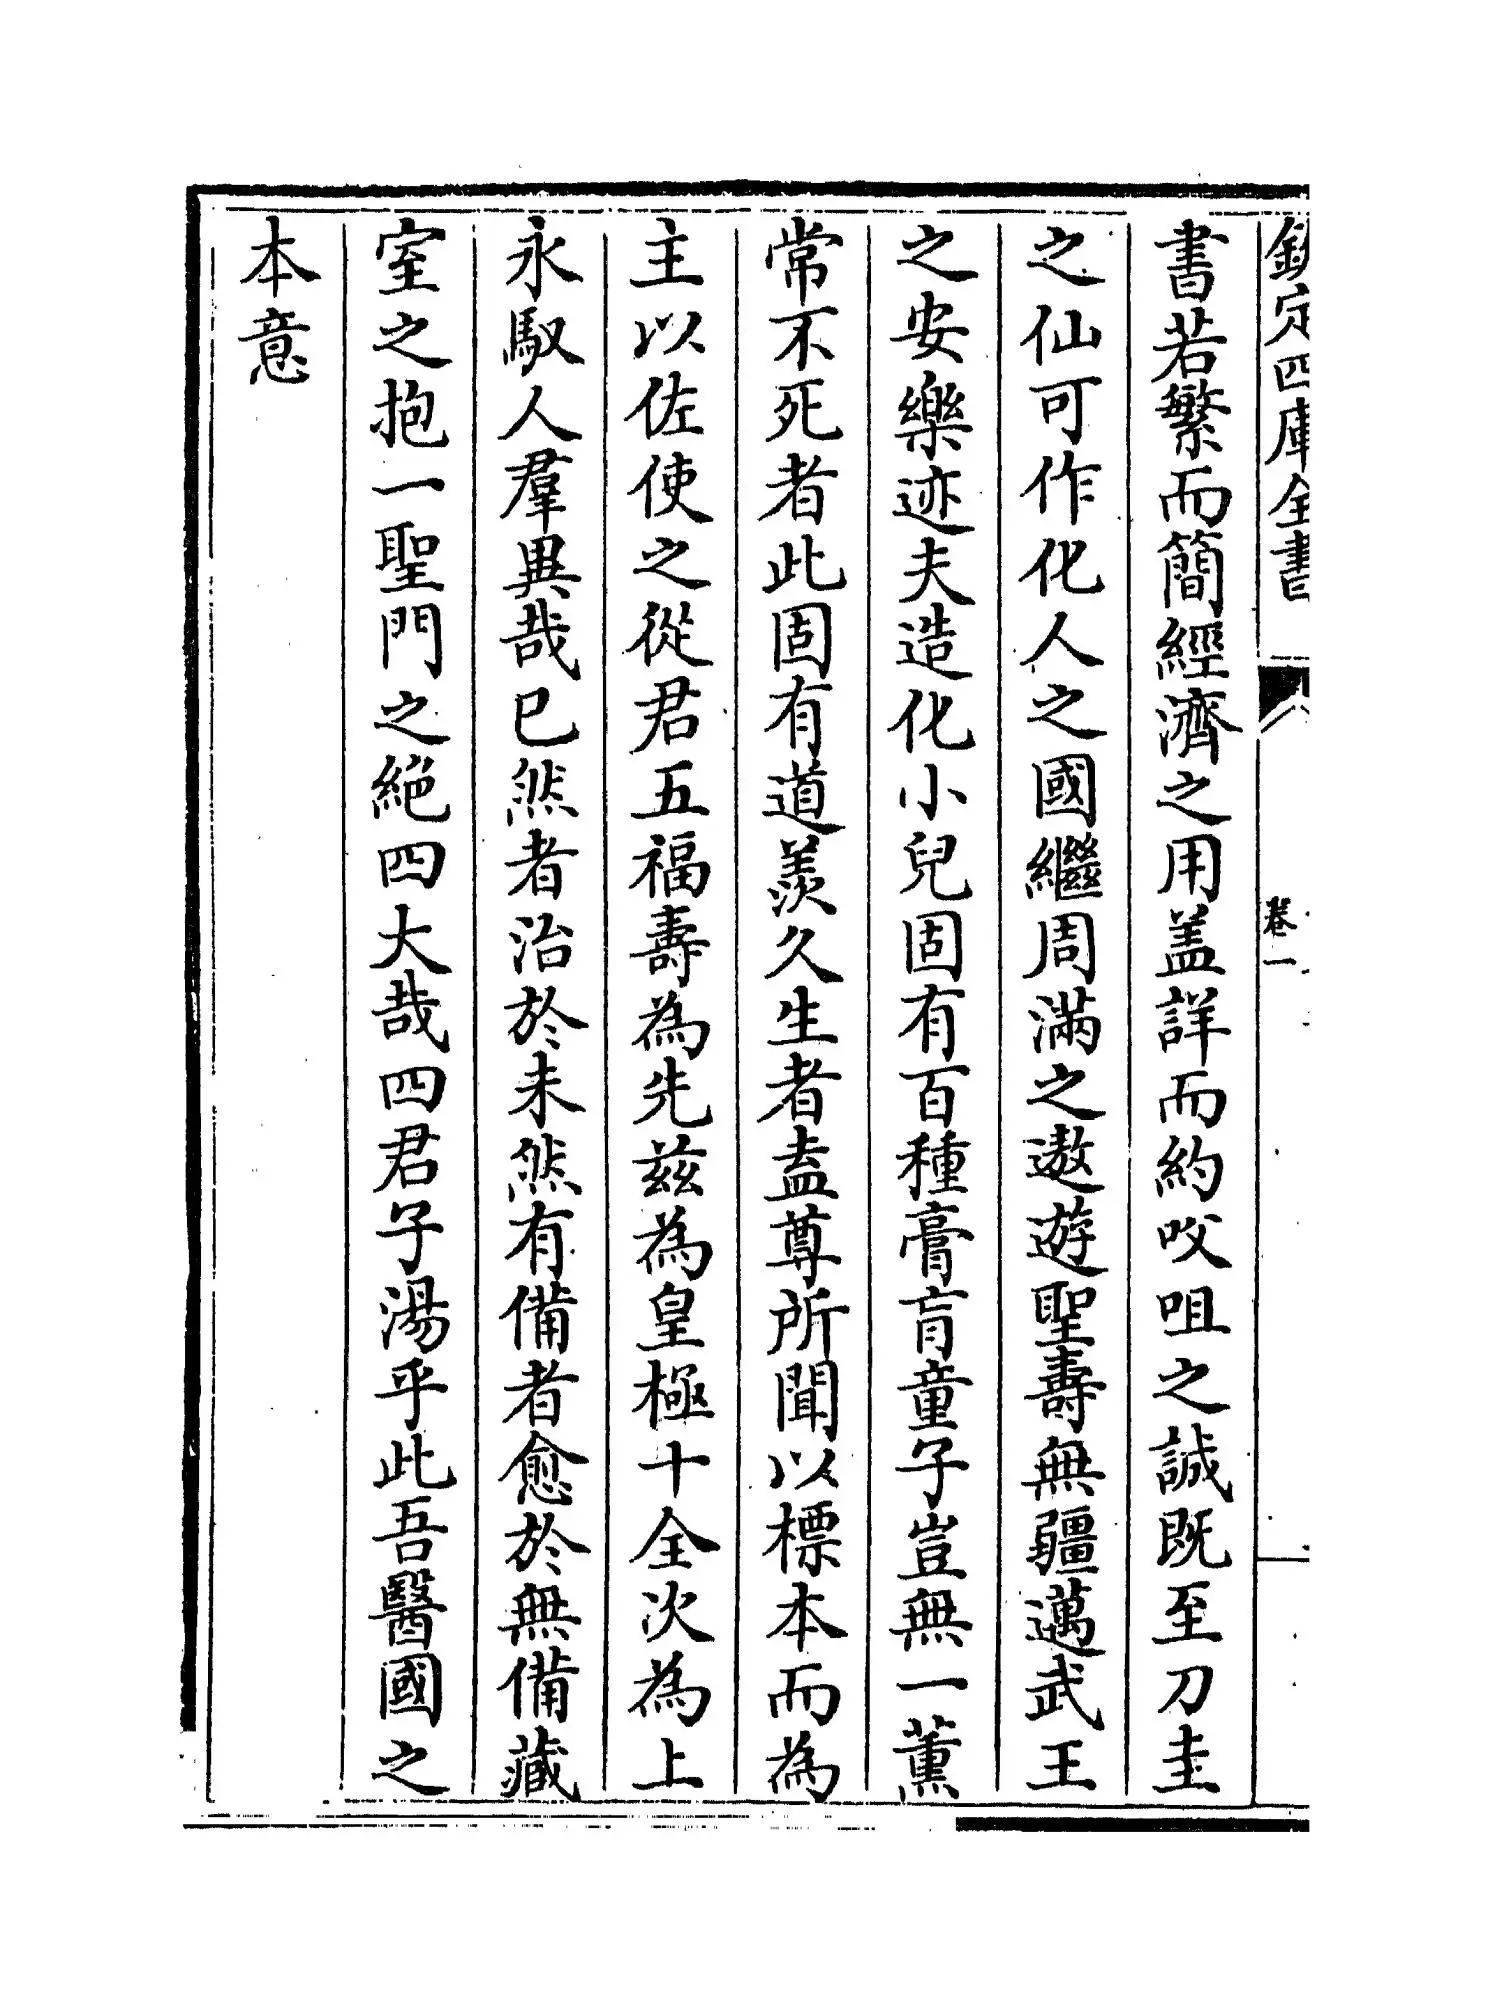 欽定四庫全書
卷一
書若繁而簡經濟之用盖詳而約㕮咀之誠既至刀圭
之仙可作化人之國繼周滿之遨遊聖壽無疆邁武王
之安樂迹夫造化小兒固有百種膏肓童子豈無一薰
常不死者此固有道羨久生者盍尊所聞以標本而為
主以佐使之從君五福壽為先兹為皇極十全次為上
永馭人羣異哉已然者治於未然有備者愈於無備藏
室之抱一聖門之絶四大哉四君子湯乎此吾醫國之
本意